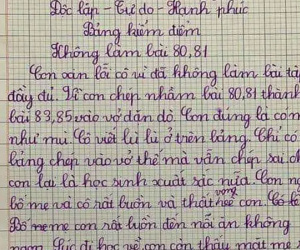 Độc lập - Tự do - Hạnh phúc
Bảng kiểm điểm
Không làm bài 80,81
Con xan lỗi cô vì đã không làm bài tà
đầy đủ. Vì con chép nhầm bài 80,81 thành
bài 83,85 vào vở dàn dò. Con đúng là có m
như mù. Cô viết lù lù ở trên bảng. Chỉ có
bảng chép vào vở thế mà vẫn chép sai ch
con lại là học sinh xuất sắc nữa. Con n
bố mẹ và cô rất buồn và thất vọng về con. C
Bố mẹ mẹ con rất buồn đến nỗi ăn không
ngon. Lúc đi học về con